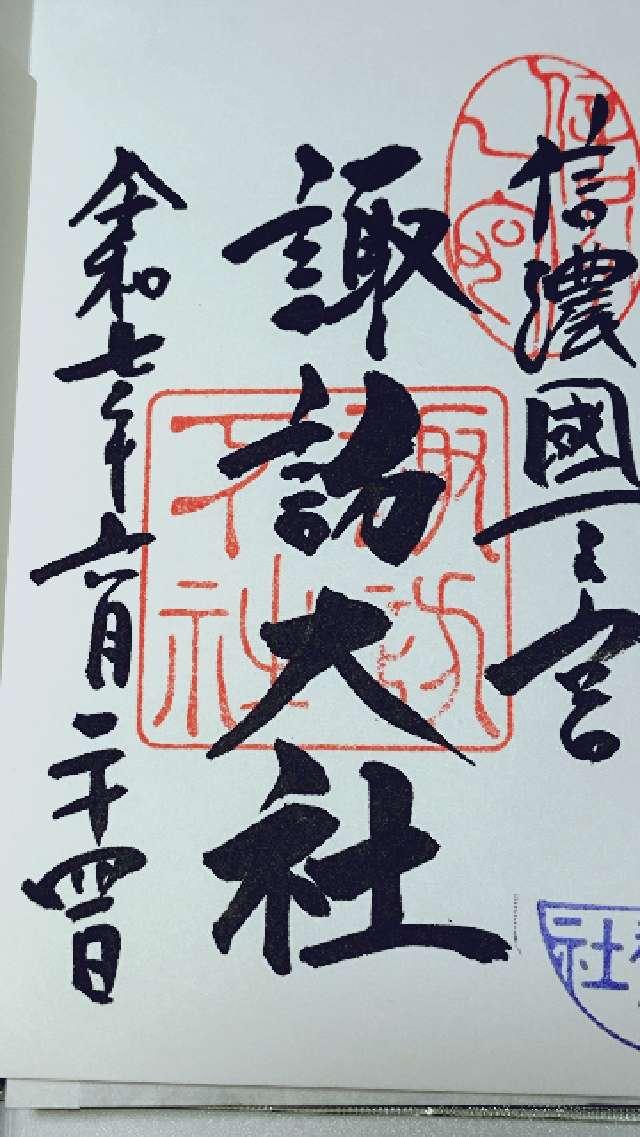 信濃國一之宮
諏訪大社
令和七年六月二十四日
諏訪
大社
社